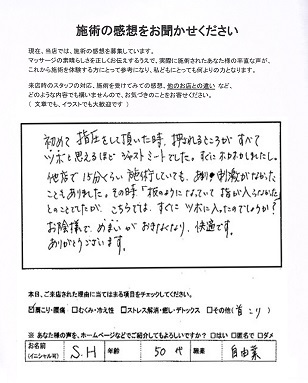 施術の感想をお聞かせください
現在、当店では、施術の感想を募集しています。
マッサージの素晴らしさを正しくお伝えするうえで、実際に施術されたあなた様の率直な声が、
これから施術を体験する方にとって参考になり、私どもにとっても何よりの力となります。
来店時のスタッフの対応、施術を受けてみての感想、他のお店との違い など、
どのような内容でも構いませんので、お気づきのことをお書きください。
（ 文章でも、イラストでも大歓迎です ）
初めて指圧をして頂いた時、押されるところがすべて
ツボと思えるほどジャストミートでした。すぐにポカポカしましたし。
他店で15分くらい施術していても、あまり刺激がなかった
こともありました。その時「板のようになっていて指が入らなかった」
とのことでしたが、こちらでは、すぐにツボに入ったのでしょうか？
お陰様で、めまいがおきなくなり、快適です。
ありがとうございます。
本日、ご来店された理由に当てはまる項目をチェックしてください。
☑肩こり・腰痛 □むくみ・冷え性 □ストレス解消・癒し・デトックス □その他（首こり）
※ あなた様の声を、ホームページなどでご紹介してもよろしいですか？ □はい ■匿名で □ダメ
お名前（イニシャル可） S.H 年齢 50代 職業 自由業